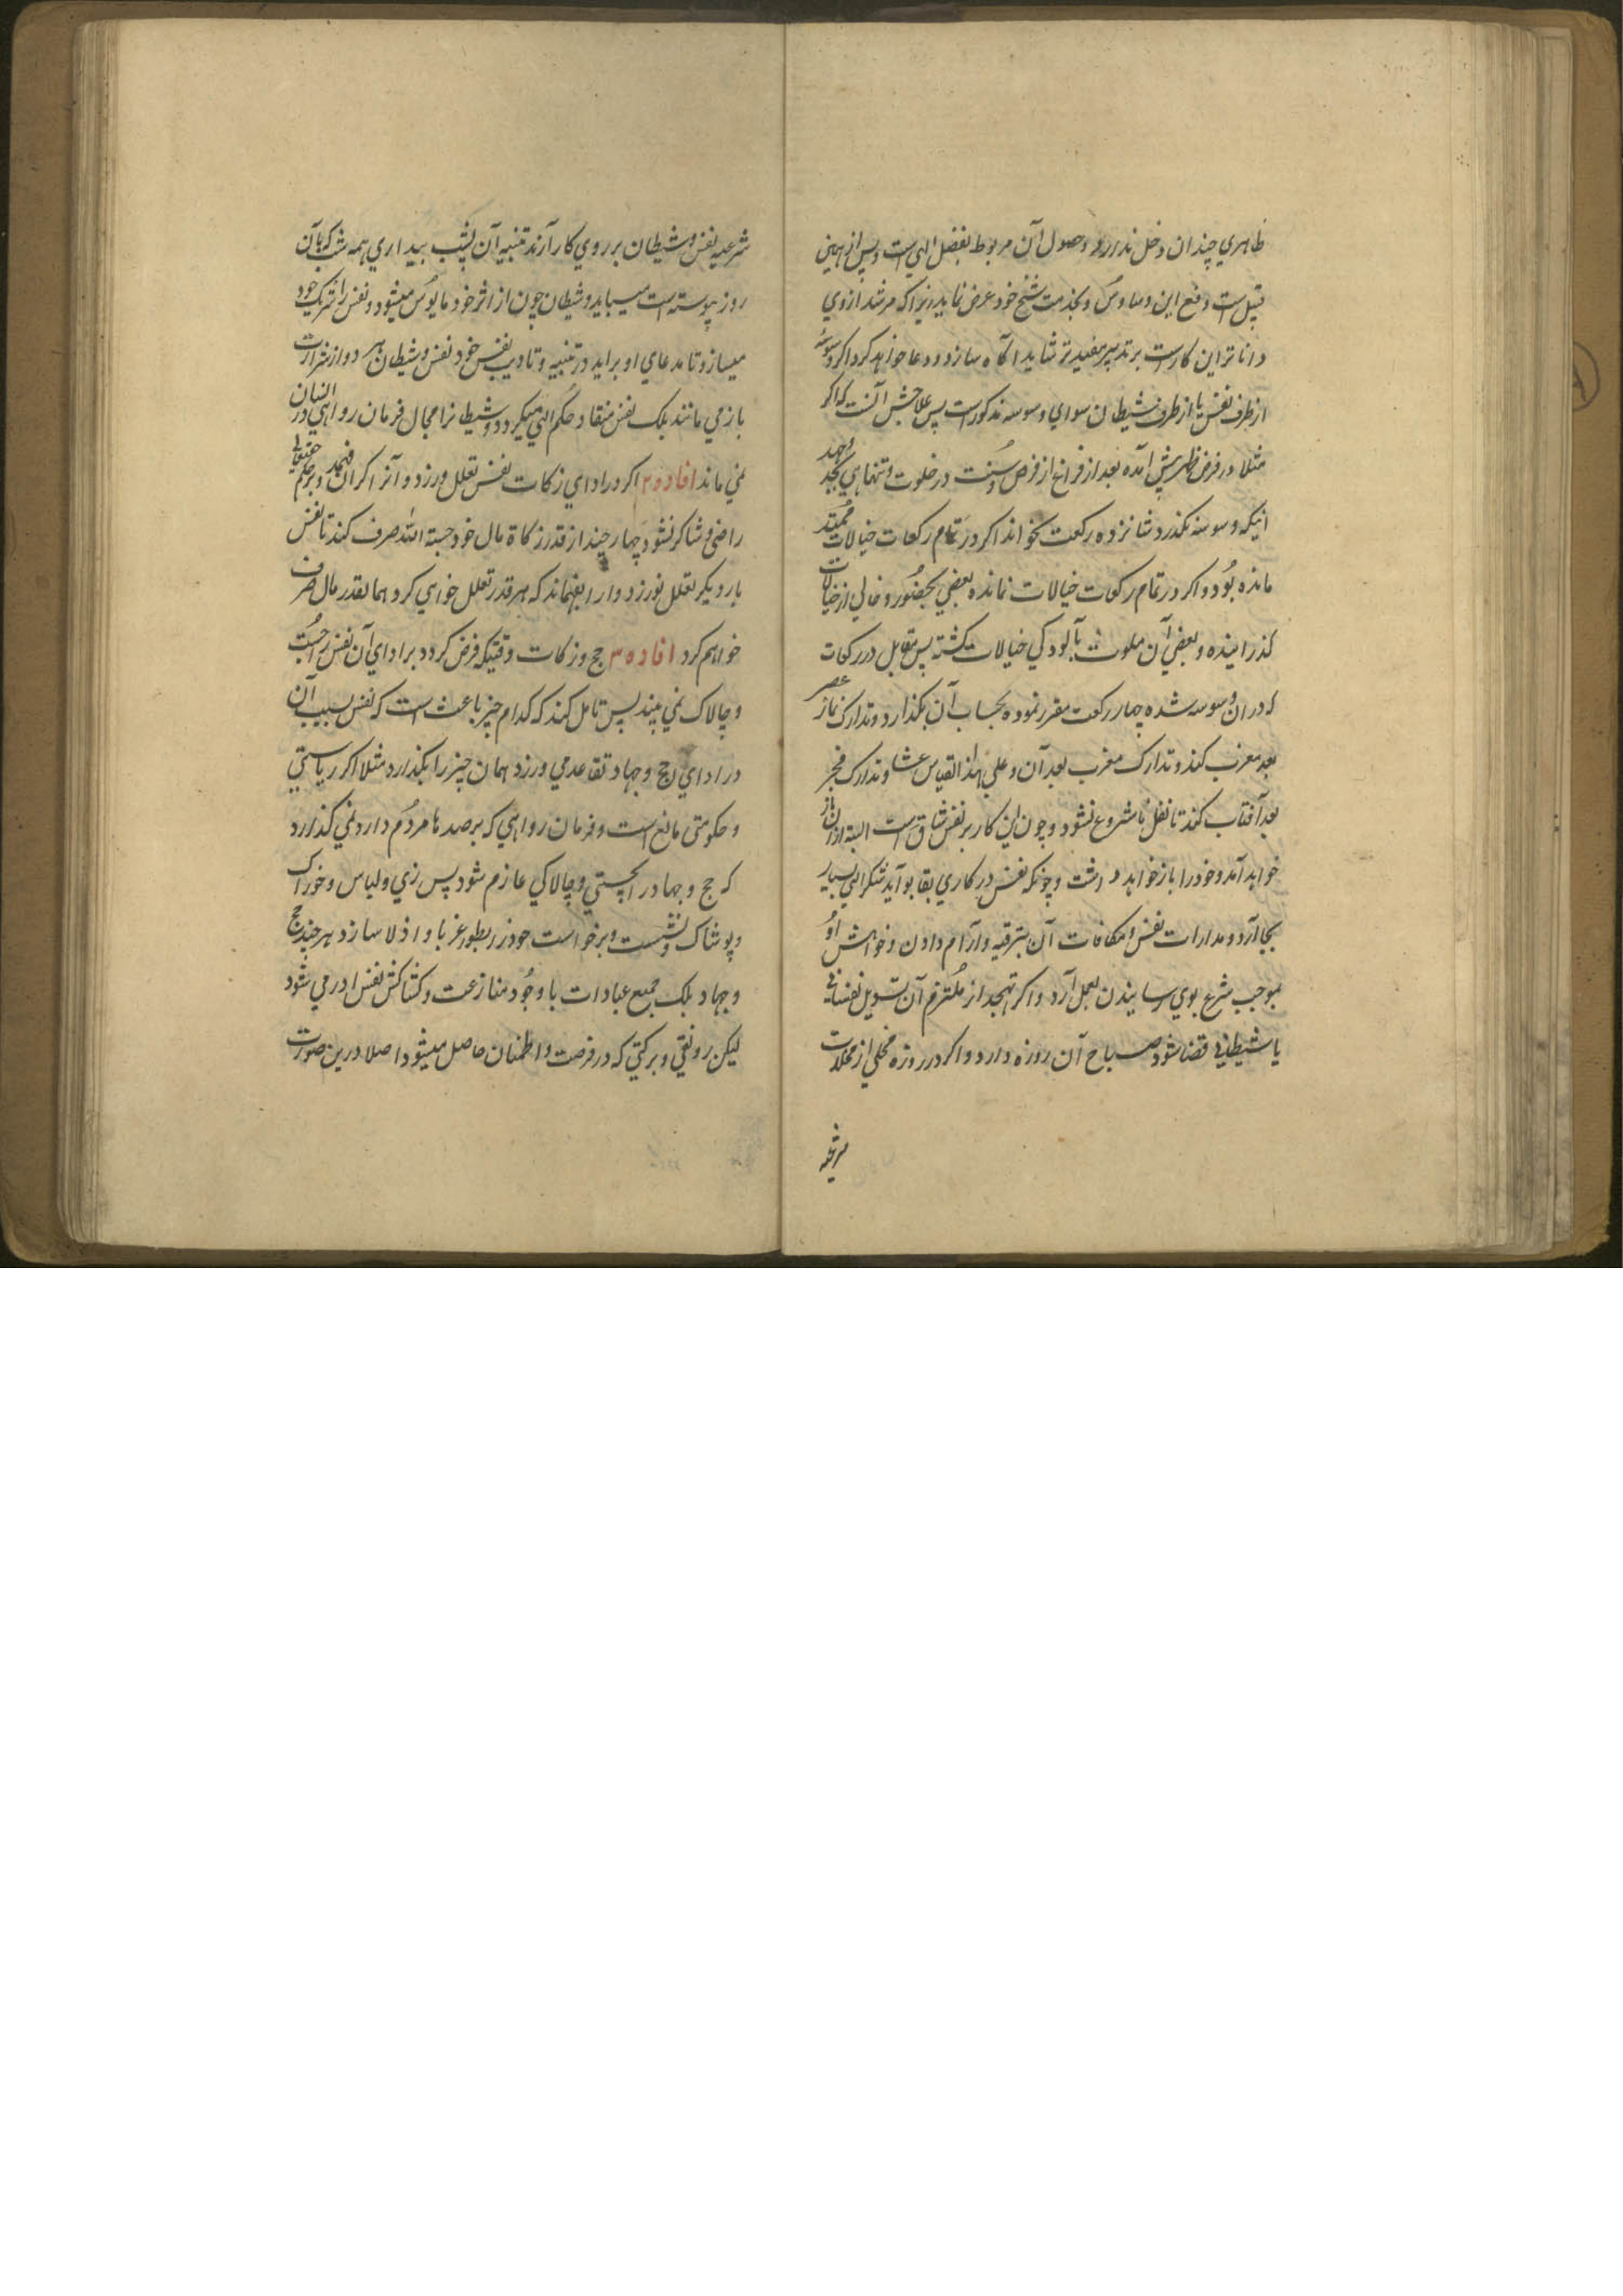 ظاهري چندان دخل ندارد و حصول آن مربوط بفضل الهي است و پس از همين
قبيل است دفع اين وساوس و بخدمت شيخ خود عرض نمايد زيرا كه مرشد از وي
دانا تر اين كار است بر تدبير مفيد تر شايد آگاه سازد و دعا خواهد كرد و اگر وسوسهٔ
از طرف نفس يا از طرف شيطان سواي وسوسه مذكور است پس علاجش آنست كه اگر
مثلا در فرض ظهر پيش آمده بعد از فراغ از فرض و سنت در خلوت و تنهاي بجد و جهد
اينكه وسوسه نگذرد شانزده ركعت بخواند اگر در تمام ركعات خيالات ممتد
مانده بود و اگر در تمام ركعات خيالات نمانده بعضي بحضور و خالي از خيالات
گذرانيده و بعضي آن ملوث بآلودگي خيالات گشته پس مقابل هر ركعات
كه در ان وسوسه شده چهار ركعت مقرر نموده بحساب آن بگذارد و تدارك نماز عصر
بعد مغرب كند و تدارك مغرب بعد آن و علي هذا القياس عشا و تدارك فجر
بعد آفتاب كند تا نفل نا مشروع نشود و چون اين كار بر نفس شاق است البته از ان باز
خواهد آمد و خود را باز خواهد داشت و چونكه نفس در كاري بقابو آيد شكر الهي بسيار
بجا آرد و مدارات نفس و مكافات آن بترفيه و آرام دادن و خواهش او
بموجب شرع بوي رسانيدن بعمل آرد و اگر تهجد از ملتزم آن بتسويل نفساني
يا شيطاني قضا شود صباح آن روزه دارد و اگر در روزه مخلي از مخلات
شرعيه
شرعيه نفس و شيطان بر روي كار آرند تنبيه آن بشب بيداري همه شب كه بآن
روز پيوسته است ميبايد و شيطان چون از اثر خود مايوس ميشود و نفس را شريك خود
ميسازد تا مدعاي او برايد در تنبيه و تاديب نفس خود نفس و شيطان هر دو از شرارت
باز مي مانند بلك نفس منقاد حكم الهي ميگردد و شيطانرا مجال فرمان روا اي در انسان
نمي ماند افاده ٢ اگر در اداي زكات نفس تعلل ورزد و آنرا گران فهمد و بر حكم حقيقي
راضي و شاكر نشود چهار چند از قدر زكاة مال خود حسبة الله صرف كند تا نفس
بار ديگر تعلل نورزد و او را بفهماند كه هر قدر تعلل خواهي كرد همانقدر مال صرف
خواهم كرد افاده ٣ حج و زكات وقتيكه فرض گردد بر اداي آن نفس را چست
و چالاك نمي بيند پس تامل كند كه كدام چيز باعث است كه نفس بسبب آن
در اداي حج و جهاد تقاعد مي ورزد همان چيز را بگذارد مثلا اگر رياستي
و حكومتي مانع است و فرمان روا اي كه بر صدها مردم دارد نمي گذارد
كه حج و جهاد را بچستي و چالاكي عازم شود پس زي و لباس و خوراك
و پوشاك و نشست و برخواست خود را بطور غربا و اذلا سازد هر چند حج
و جهاد بلك جميع عبادات با وجود منازعت و كشاكش نفس ادا مي شود
ليكن رونقي و بركتي كه در فرصت و اطمنان حاصل ميشود اصلا درين صورت